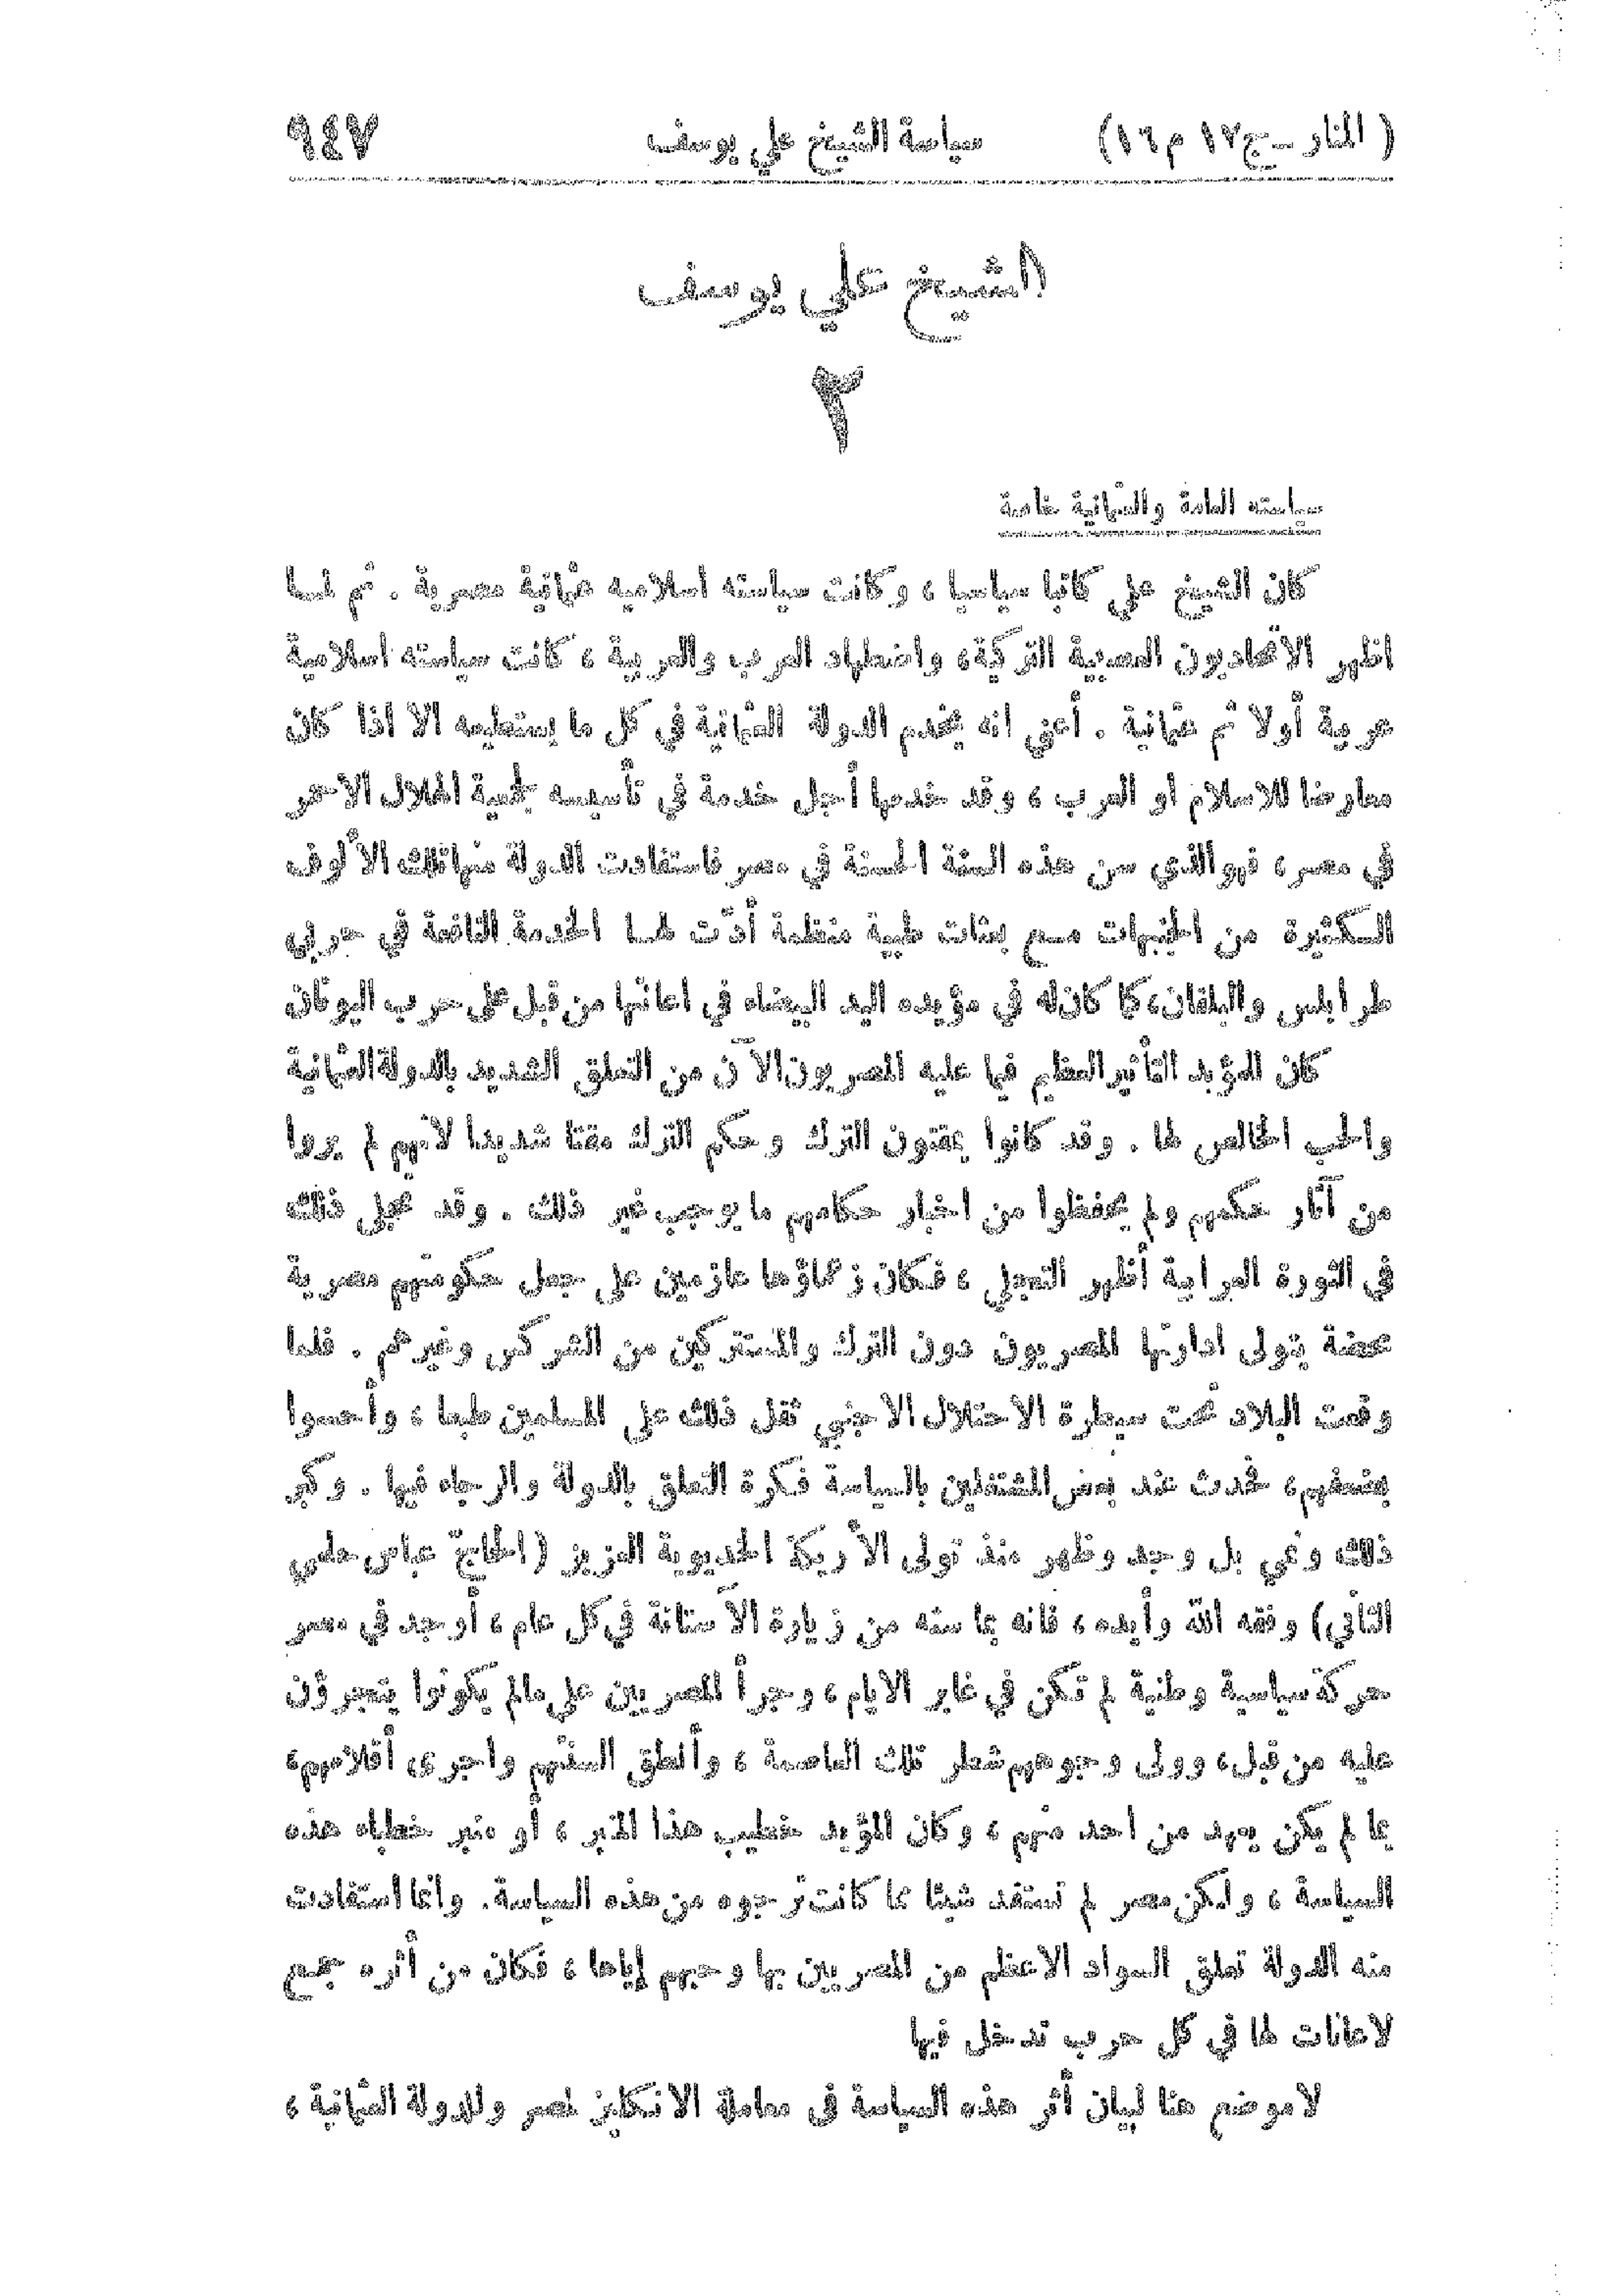 (المنار – ج ١٢ م ١٦) سياسة الشيخ علي يوسف ٩٤٧
الشيخ علي يوسف
٣
سياسته العامة والعثمانية خاصة
كان الشيخ علي كاتبا سياسيا ، وكانت سياسته اسلاميه عثمانية مصرية . ثم لما
اظهر الاتحاديون العصبية التركية، واضطهاد العرب والعربية ، كانت سياسته اسلامية
عربية أولا ثم عثمانية . أعني انه يخدم الدولة العثمانية في كل ما يستطيعه الا اذا كان
معارضا للاسلام او العرب ، وقد خدمها أجل خدمة في تأسيسه لجمعية الهلال الاحمر
في مصر ، فهو الذي سن هذه السنة الحسنة في مصر فاستفادت الدولة منها تلك الألوف
الكثيرة من الجنيهات مع بعثات طبية منظمة أدّت لها الخدمة النافعة في حربي
طرابلس والبلقان، كما كان له في مؤيده اليد البيضاء في اعانتها من قبل على حرب اليونان
كان للمؤيد التأثير العظيم فيما عليه المصريون الآن من التعلق الشديد بالدولة العثمانية
والحب الخالص لها . وقد كانوا يمقتون الترك وحكم الترك مقتا شديدا لانهم لم يروا
من آثار حكمهم ولم يحفظوا من اخبار حكامهم ما يوجب غير ذلك . وقد تجلى ذلك
في الثورة العرابية أظهر التجلي ، فكان زعماؤها عازمين على جعل حكومتهم مصرية
محضة يتولى ادارتها المصريون دون الترك والمستتركين من الشركس وغيرهم . فلما
وقعت البلاد تحت سيطرة الاحتلال الاجنبي ثقل ذلك على المسلمين طبعا ، وأحسوا
بضعفهم، فحدث عند بعض المشتغلين بالسياسة فكرة التعلق بالدولة والرجاء فيها . وكبر
ذلك ونمي بل وجد وظهر منذ تولى الأريكة الخديوية العزيز (الحاج عباس حلمي
الثاني) وفقه الله وأيده ، فانه بما سنه من زيارة الآستانة في كل عام ، أوجد في مصر
حركة سياسية وطنية لم تكن في غابر الايام ، وجرأ المصريين على ما لم يكونوا يتجرؤن
عليه من قبل، وولى وجوههم شطر تلك العاصمة ، وأنطق السنتهم واجرى أقلامهم،
بما لم يكن يعهد من احد منهم ، وكان المؤيد خطيب هذا المنبر ، أو منبر خطباء هذه
السياسة ، ولكن مصر لم تستفد شيئا مما كانت ترجوه من هذه السياسة. وانما استفادت
منه الدولة تعلق السواد الاعظم من المصريين بها وحبهم إياها ، فكان من أثره جمع
لاعانات لها في كل حرب تدخل فيها
لا موضع هنا لبيان أثر هذه السياسة في معاملة الانكليز لمصر وللدولة العثمانية ،